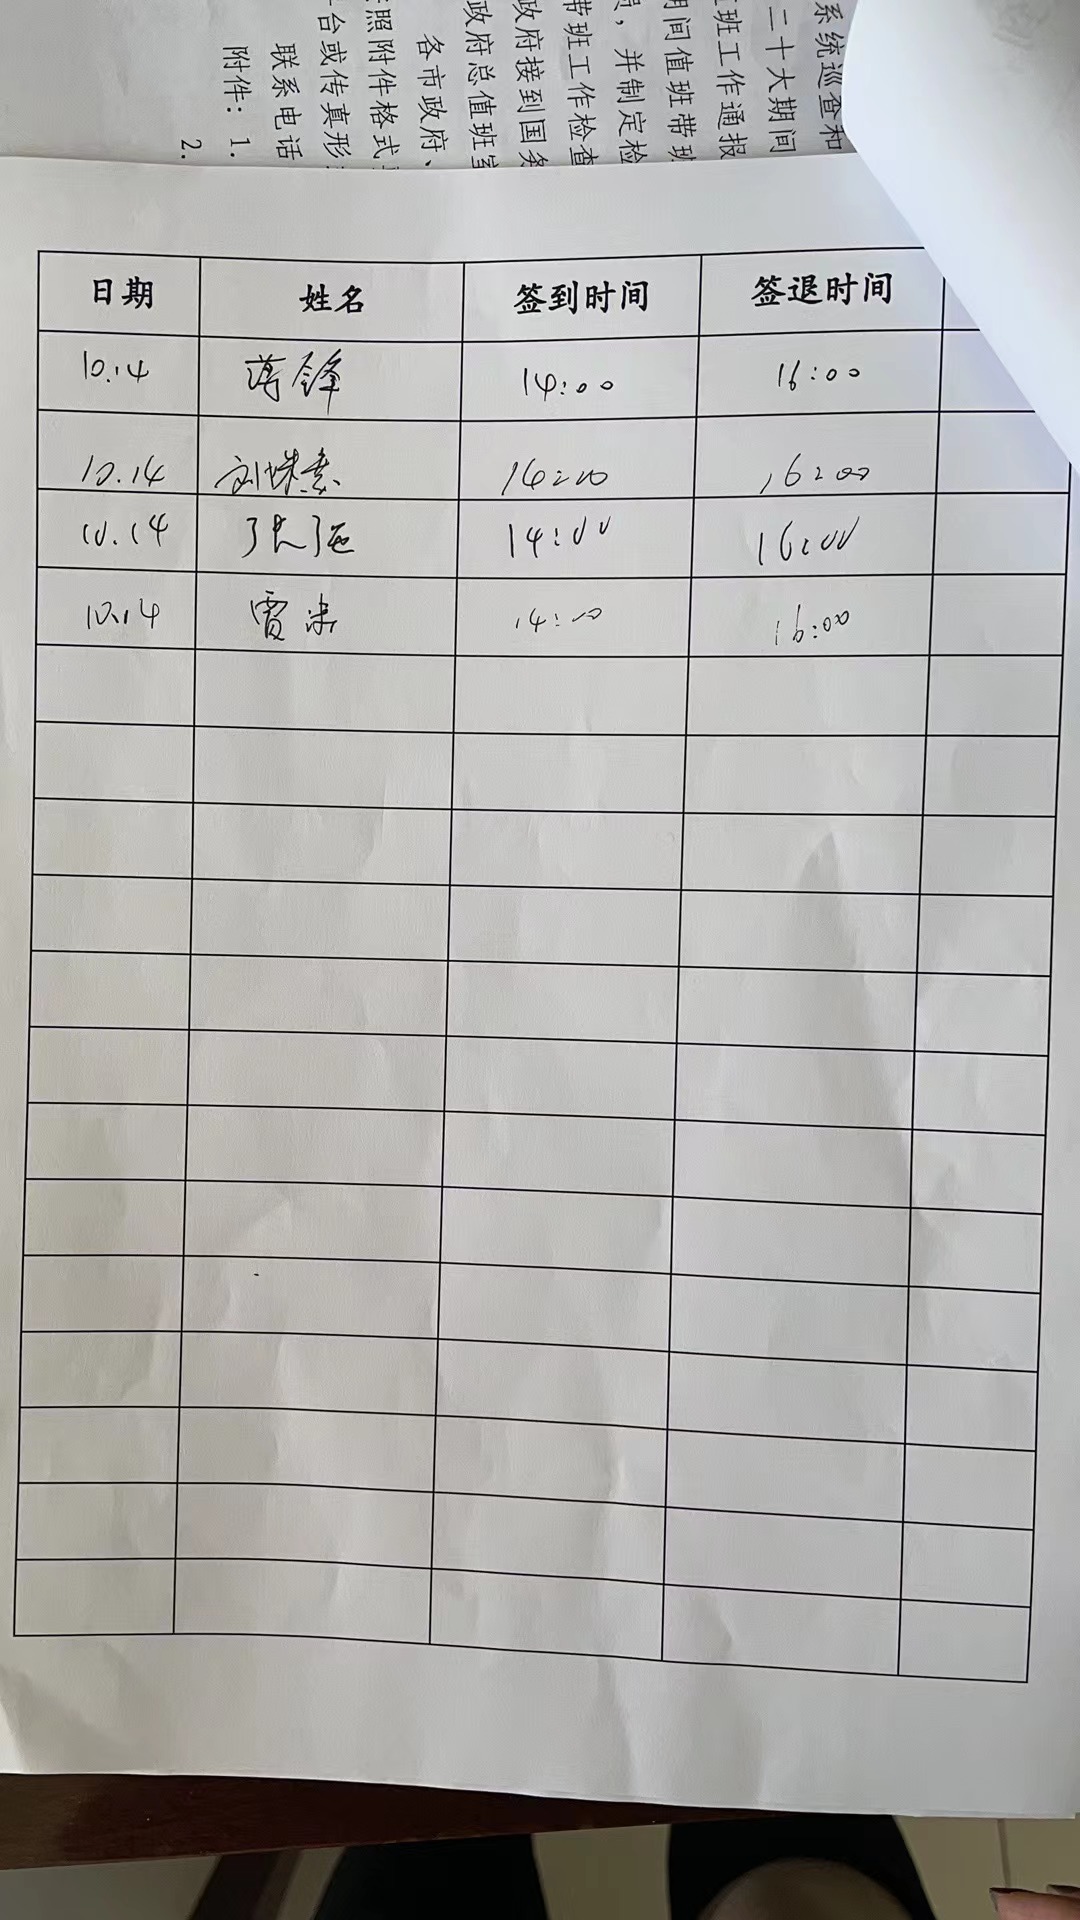 系统巡查和
二十大期间
班工作通报
期间值班带班
，并制定检
带班工作检查
政府接到国务
政府总值班室
各市政府、
照附件格式
台或传真形
联系电话
附件：1.
2.
日期 姓名 签到时间 签退时间
10.14 蒋锋 14:00 16:00
10.14 刘姝素 14:00 16:00
10.14 张弛 14:00 16:00
10.14 贾 14:00 16:00